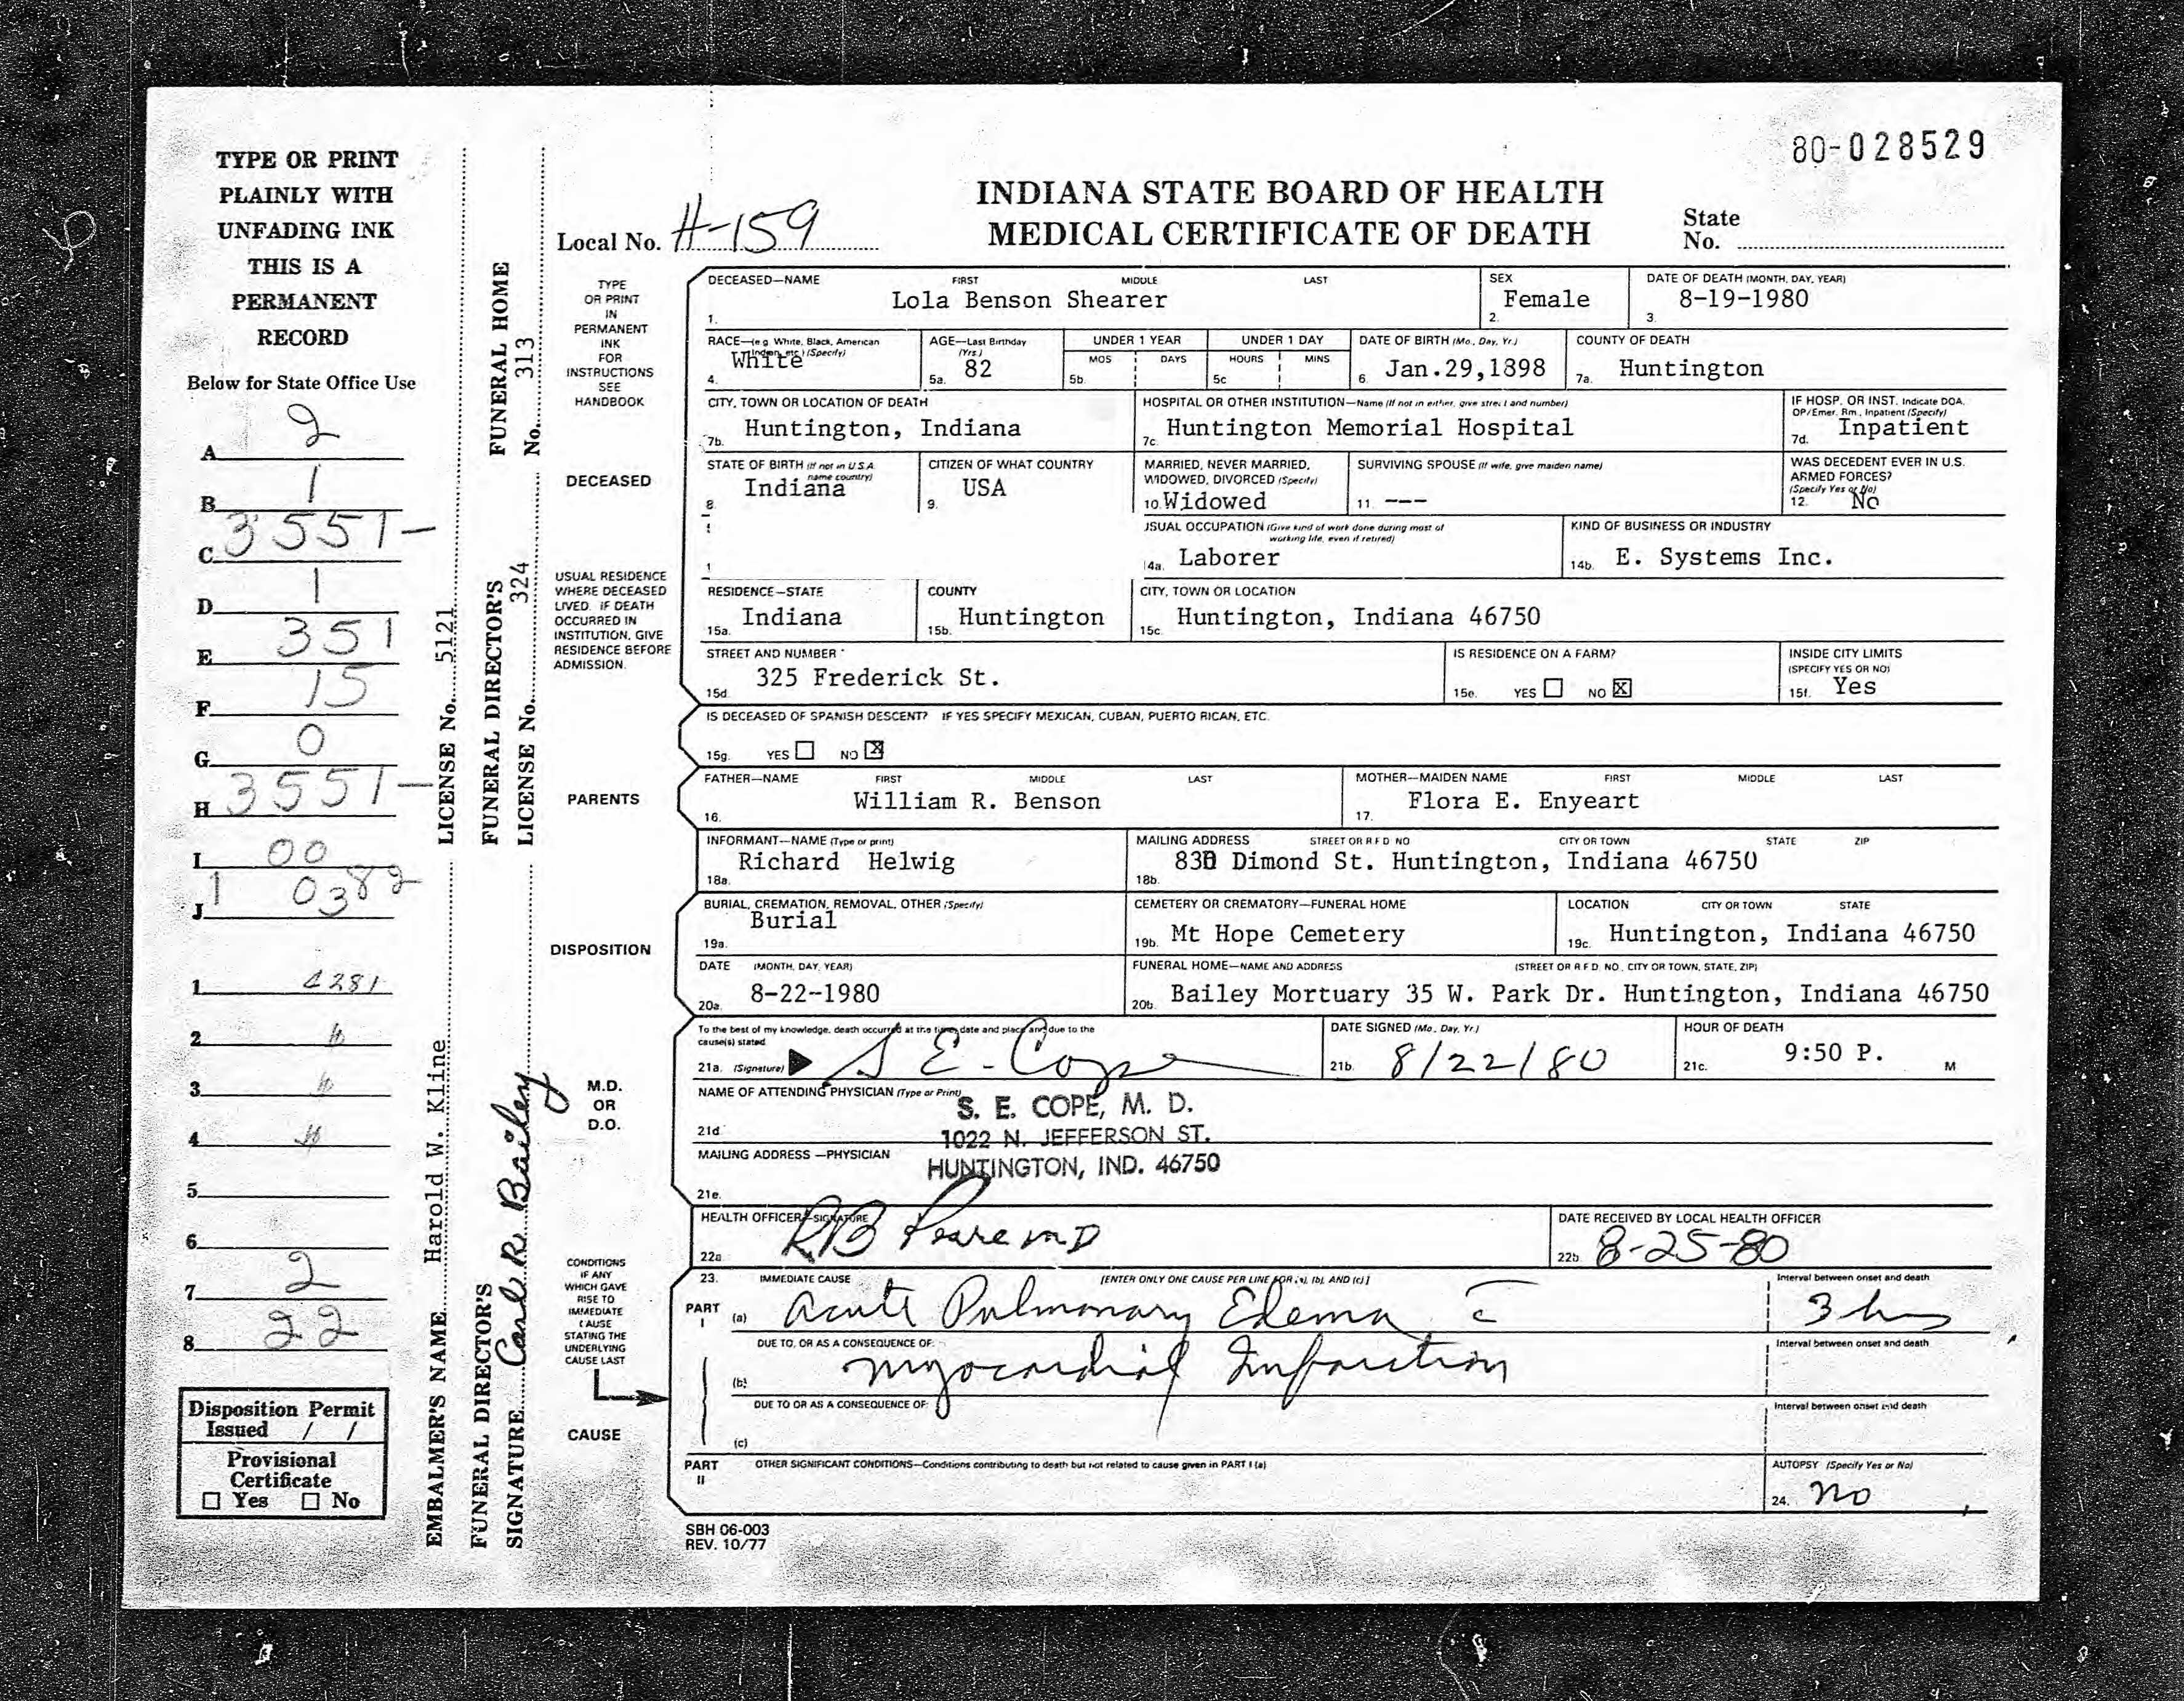 80-028529
TYPE OR PRINT
PLAINLY WITH
UNFADING INK
THIS IS A
PERMANENT
RECORD
Below for State Office Use
A 2
B 1
C 3551-
D 1
E 351
F 15
G 0
H 3551-
I 00
J 1 0382
1 4281
2
3
4
5
6
7 2
8 22
Disposition Permit
Issued / /
Provisional
Certificate
☐ Yes ☐ No
EMBALMER'S NAME Harold W. Kline LICENSE No. 5121
FUNERAL DIRECTOR'S
SIGNATURE Carl R. Bailey
FUNERAL DIRECTOR'S
LICENSE No. 324
FUNERAL HOME
No. 313
INDIANA STATE BOARD OF HEALTH
MEDICAL CERTIFICATE OF DEATH
Local No. H-159
State
No.
TYPE
OR PRINT
IN
PERMANENT
INK
FOR
INSTRUCTIONS
SEE
HANDBOOK
DECEASED—NAME FIRST MIDDLE LAST
1. Lola Benson Shearer
SEX
2. Female
DATE OF DEATH (MONTH, DAY, YEAR)
3. 8-19-1980
RACE—(e.g. White, Black, American
Indian, etc.) (Specify)
4. White
AGE—Last Birthday
(Yrs.)
5a. 82
UNDER 1 YEAR
MOS DAYS
5b.
UNDER 1 DAY
HOURS MINS
5c
DATE OF BIRTH (Mo., Day, Yr.)
6. Jan.29,1898
COUNTY OF DEATH
7a. Huntington
CITY, TOWN OR LOCATION OF DEATH
7b. Huntington, Indiana
HOSPITAL OR OTHER INSTITUTION—Name (If not in either, give street and number)
7c. Huntington Memorial Hospital
IF HOSP. OR INST. Indicate DOA,
OP/Emer. Rm., Inpatient (Specify)
7d. Inpatient
DECEASED
STATE OF BIRTH (If not in U.S.A.
name country)
8. Indiana
CITIZEN OF WHAT COUNTRY
9. USA
MARRIED, NEVER MARRIED,
WIDOWED, DIVORCED (Specify)
10. Widowed
SURVIVING SPOUSE (If wife, give maiden name)
11. ---
WAS DECEDENT EVER IN U.S.
ARMED FORCES?
(Specify Yes or No)
12. No
USUAL OCCUPATION (Give kind of work done during most of
working life, even if retired)
14a. Laborer
KIND OF BUSINESS OR INDUSTRY
14b. E. Systems Inc.
USUAL RESIDENCE
WHERE DECEASED
LIVED. IF DEATH
OCCURRED IN
INSTITUTION, GIVE
RESIDENCE BEFORE
ADMISSION.
RESIDENCE—STATE
15a. Indiana
COUNTY
15b. Huntington
CITY, TOWN OR LOCATION
15c. Huntington, Indiana 46750
STREET AND NUMBER
15d. 325 Frederick St.
IS RESIDENCE ON A FARM?
15e. YES ☐ NO ☒
INSIDE CITY LIMITS
(SPECIFY YES OR NO)
15f. Yes
IS DECEASED OF SPANISH DESCENT? IF YES SPECIFY MEXICAN, CUBAN, PUERTO RICAN, ETC.
15g. YES ☐ NO ☒
PARENTS
FATHER—NAME FIRST MIDDLE LAST
16. William R. Benson
MOTHER—MAIDEN NAME FIRST MIDDLE LAST
17. Flora E. Enyeart
INFORMANT—NAME (Type or print)
18a. Richard Helwig
MAILING ADDRESS STREET OR R.F.D. NO CITY OR TOWN STATE ZIP
18b. 830 Dimond St. Huntington, Indiana 46750
DISPOSITION
BURIAL, CREMATION, REMOVAL, OTHER (Specify)
19a. Burial
CEMETERY OR CREMATORY—FUNERAL HOME
19b. Mt Hope Cemetery
LOCATION CITY OR TOWN STATE
19c. Huntington, Indiana 46750
DATE (MONTH, DAY, YEAR)
20a. 8-22-1980
FUNERAL HOME—NAME AND ADDRESS (STREET OR R.F.D. NO., CITY OR TOWN, STATE, ZIP)
20b. Bailey Mortuary 35 W. Park Dr. Huntington, Indiana 46750
M.D.
OR
D.O.
To the best of my knowledge, death occurred at the time, date and place and due to the
cause(s) stated
21a. (Signature) S E. Cope
DATE SIGNED (Mo., Day, Yr.)
21b. 8/22/80
HOUR OF DEATH
21c. 9:50 P. M
NAME OF ATTENDING PHYSICIAN (Type or Print)
21d. S. E. COPE, M. D.
1022 N. JEFFERSON ST.
MAILING ADDRESS—PHYSICIAN
21e. HUNTINGTON, IND. 46750
HEALTH OFFICER—SIGNATURE
22a. RB Peare MD
DATE RECEIVED BY LOCAL HEALTH OFFICER
22b. 8-25-80
CONDITIONS
IF ANY
WHICH GAVE
RISE TO
IMMEDIATE
CAUSE
STATING THE
UNDERLYING
CAUSE LAST
CAUSE
23. IMMEDIATE CAUSE [ENTER ONLY ONE CAUSE PER LINE FOR (a), (b), AND (c)]
PART I (a) Acute Pulmonary Edema c̄
Interval between onset and death
3 hrs
DUE TO, OR AS A CONSEQUENCE OF:
(b) Myocardial Infarction
Interval between onset and death
DUE TO OR AS A CONSEQUENCE OF:
(c)
Interval between onset and death
PART II OTHER SIGNIFICANT CONDITIONS—Conditions contributing to death but not related to cause given in PART I (a)
AUTOPSY (Specify Yes or No)
24. no
SBH 06-003
REV. 10/77